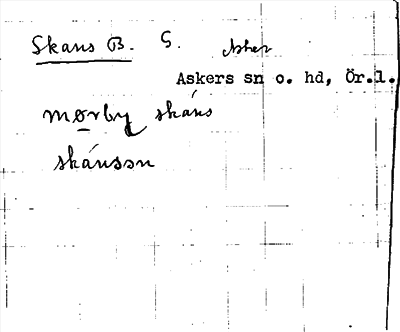 Skans B. G. Asker
Askers sn o. hd, Ör.l.
mørby skáns
skánsən